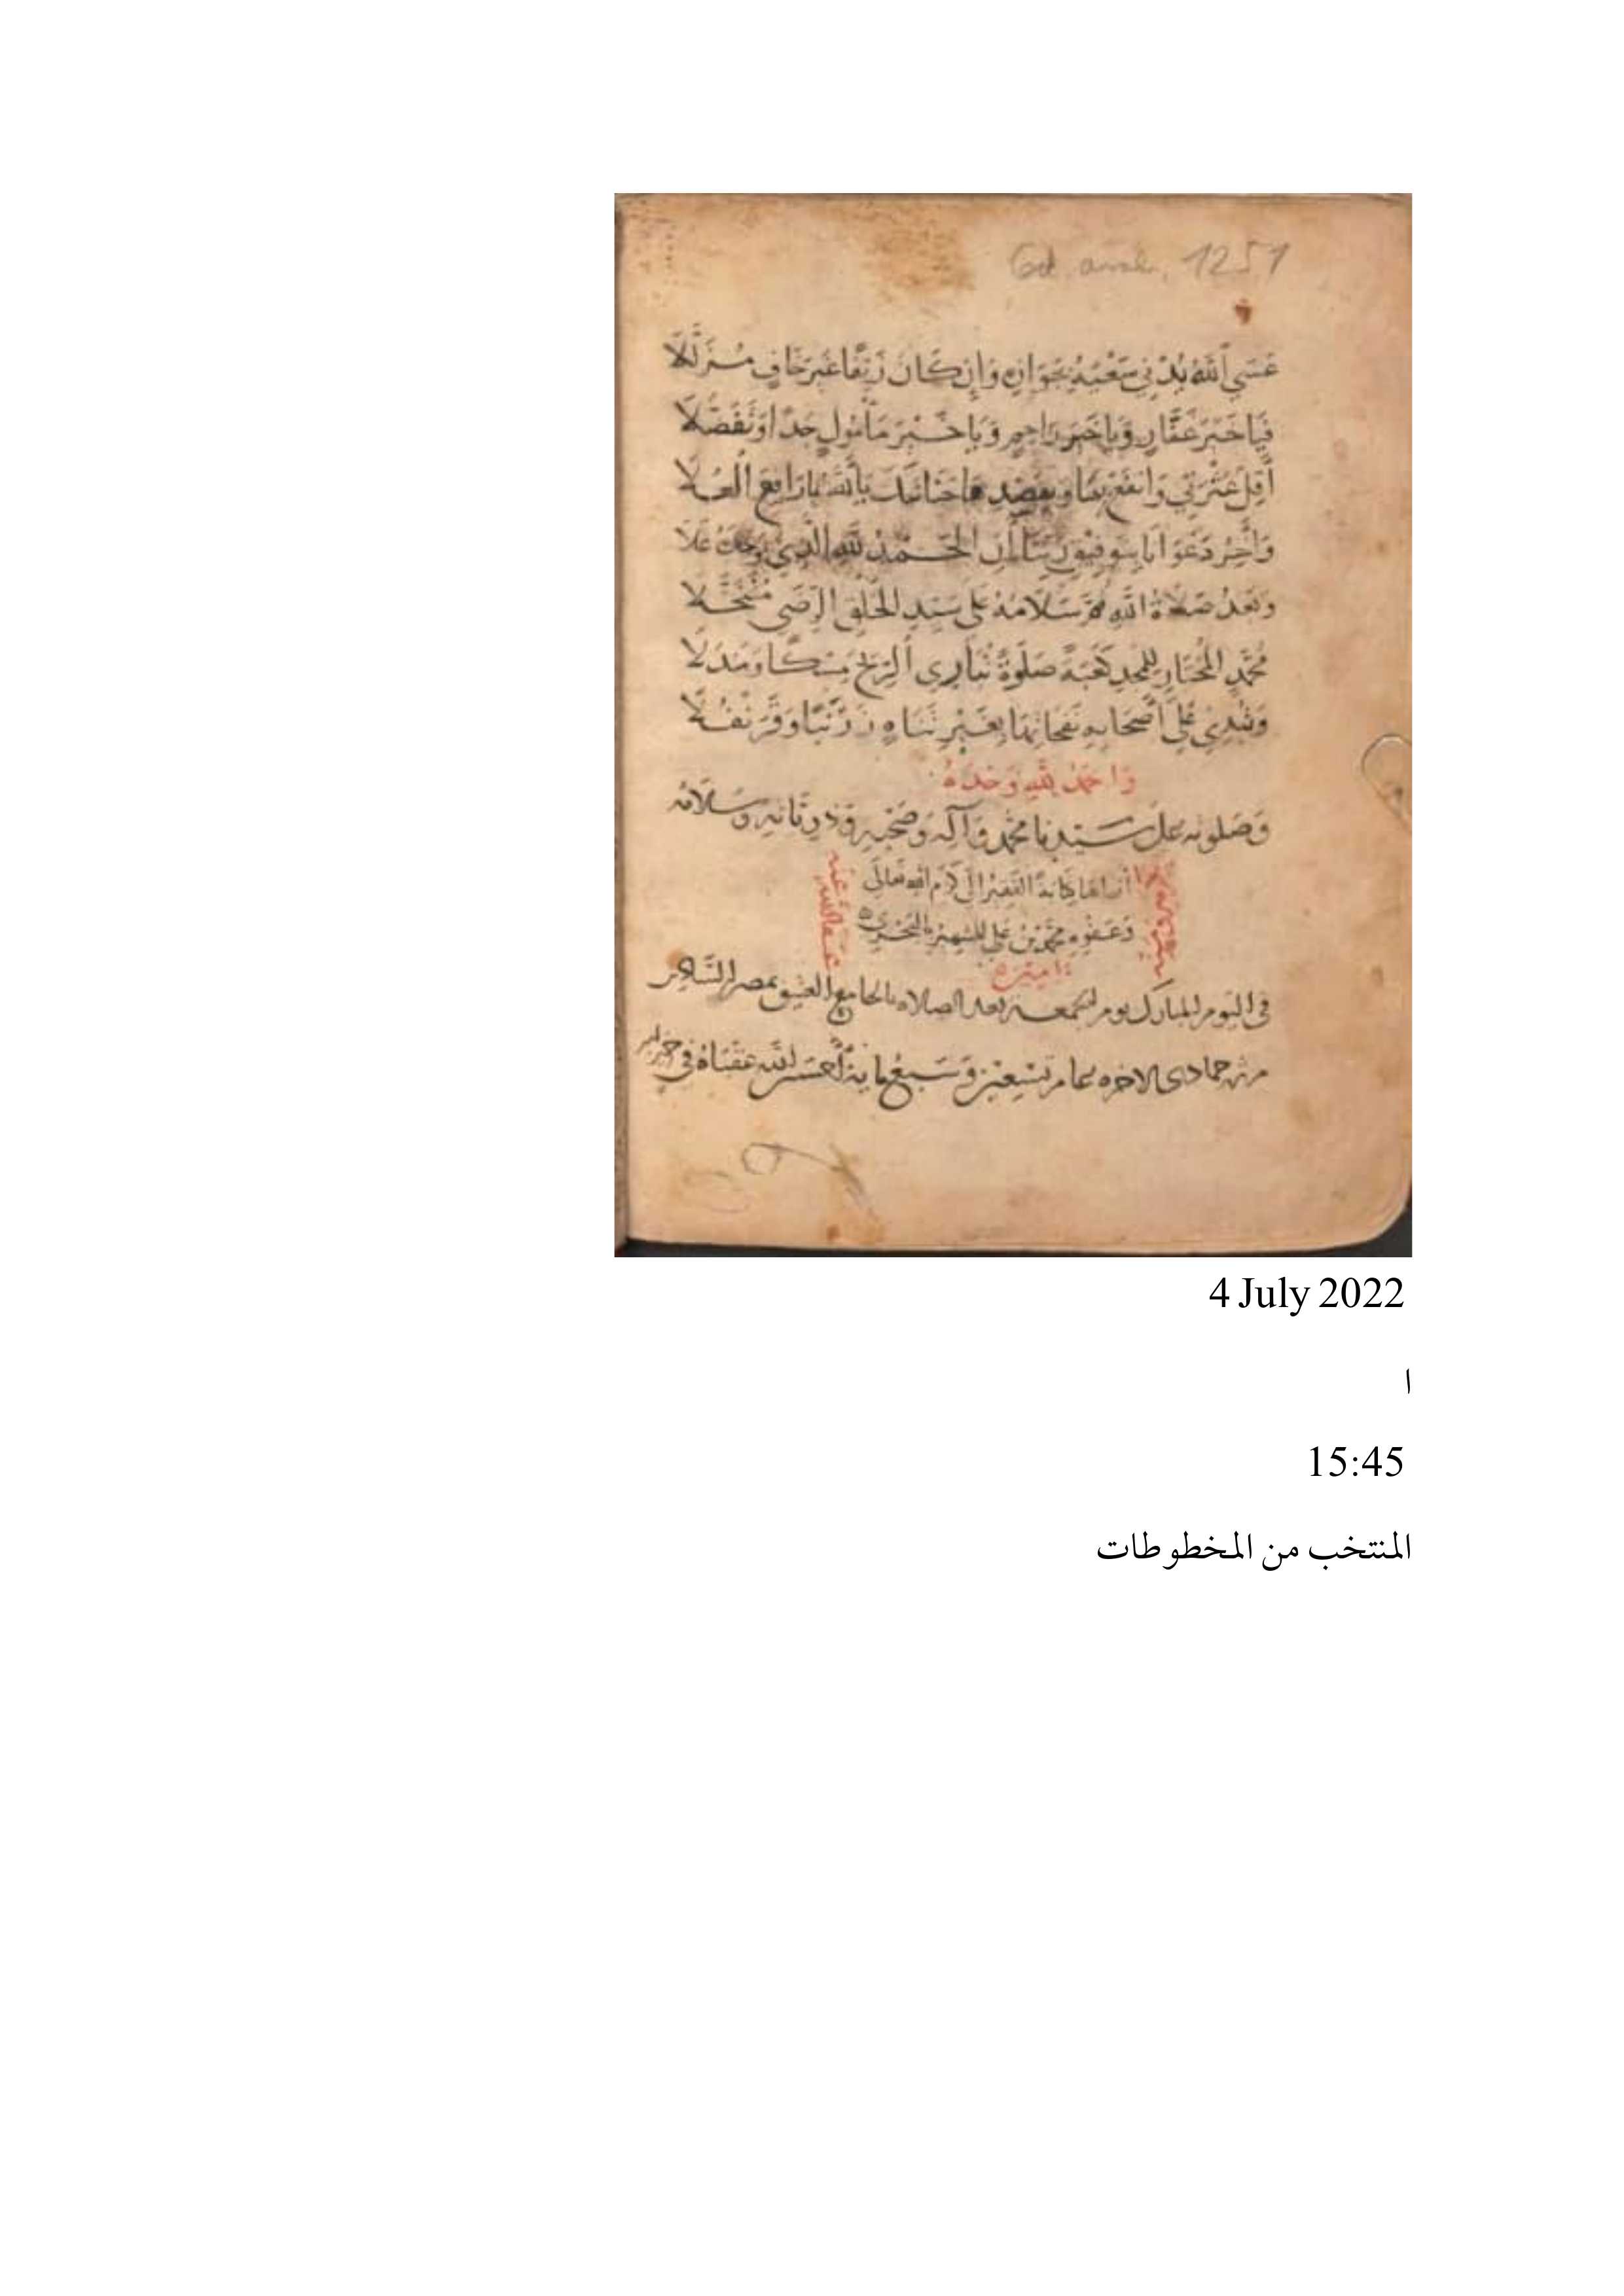 Cod. arab. 1251
عَسَى ٱللهُ يُدْنِي سَعْيَهُ بِجَوَازِهِ وَإِن كَانَ زَيْفًا غَيْرَ خَافٍ مُزَلَّلَا
فَيَا خَيْرَ غَفَّارٍ وَيَا خَيْرَ رَاحِمٍ وَيَا خَيْرَ مَأْمُولٍ جَدًا وَتَفَضُّلَا
أَقِلْ عَثْرَتِي وَانْفَعْ بِهَا وَبِقَصْدِهَا حَنَانَيْكَ يَا أَللهُ يَا رَافِعَ الْعُلَا
وَآخِرُ دَعْوَانَا بِتَوْفِيقِ رَبِّنَا أَنِ الْحَمْدُ لِلهِ الَّذِي وَحْدَهُ عَلَا
وَبَعْدُ صَلَاةُ اللهِ ثُمَّ سَلَامُهُ عَلَى سَيِّدِ الْخَلْقِ الرِّضَى مُتَنَخَّلَا
مُحَمَّدٍ الْمُخْتَارِ لِلْمَجْدِ كَعْبَةً صَلَوٰةً تُبَارِي ٱلرِّيحَ مِسْكًا وَمَنْدَلَا
وَتُبْدِي عَلَى أَصْحَابِهِ نَفَحَاتِهَا بِغَيْرِ تَنَاهٍ زَرْنَبًا وَقَرَنْفُلَا
وَالحَمْدُ لِلهِ وَحْدَهُ
وَصَلَوٰته عَلَى سَيِّدِنَا مُحَمَّد وَآلِه وَصَحْبِهِ وَذُرِّيَّاتِهِ وَسَلَامُه
الفَقِيْرُ إِلَى كَرَمِ الله تَعَالَى
وَعَفْوِهِ مُحَمَّدُ بْنُ عَلِي الشَّهِيْرُ
عفا الله عنه
امين
فى اليَوْمِ المُبَارَك يوم الجمعة بعد الصلاه بالجامع العتيق بمصر
من جمادى الاخره عام تِسْعِيْنَ وَسَبْعُمَايَةٍ اللهُ عُقْبَاهُ فِى خير
4 July 2022
ا
15:45
المنتخب من المخطوطات